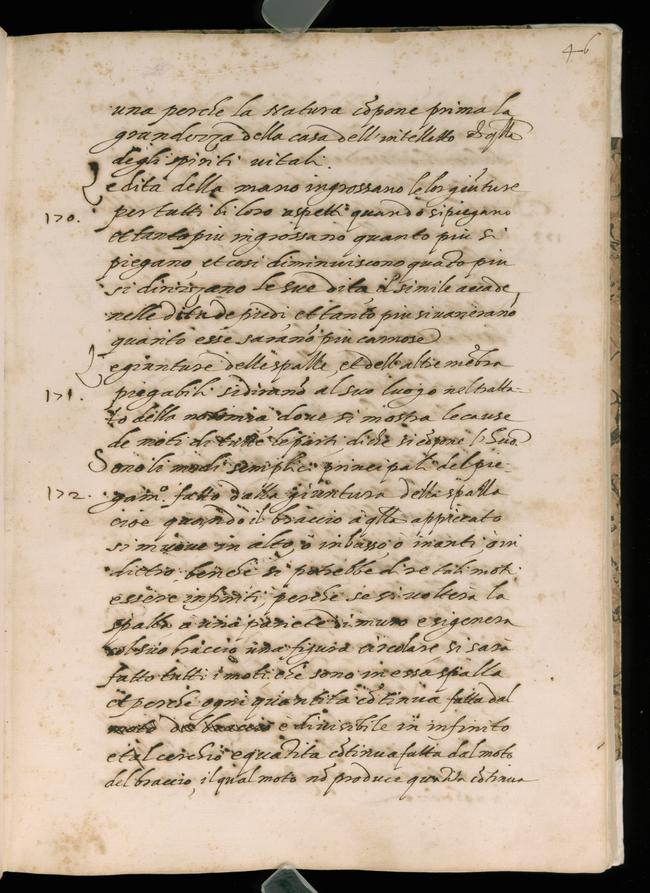 46
una perche la Natura cõpone prima la
grandezza della casa dell'intelletto di q̃lla
degli spiriti uitali.
Le dita della mano ingrossano le lor giũture
170. per tutti li loro aspetti quando si piegano
et tanto piu ingrossano quanto piu si
piegano, et cosi diminuiscono quãto piu
si dirizzano le sue dita il simile accade,
nelle dita de piedi et tanto piu si varierano
quanto esse sarano piu carnose
Le gionture delle spalle et dell'altre mẽbra
171. piegabili si dirano al suo luogo nel tratta-
to della notomia doue si mostra le cause
de moti di tutte le parti di che si cõpone l'huõ.
Sono li modi semplici principali del pie-
172. gam.º fatto dalla giuntura della spalla
cioe quando il braccio a q̃lla appiccato
si muoue in alto, o in basso, o inanti, o in
dietro, benche si potrebbe dire tali moti
essere infiniti, perche se si uoltera la
spalla a una pariete di muro e si genera
col suo braccio una figura circolare si sara
fatto tutti i moti che sono in essa spalla
et perche ogni quantita cõtinua fatta dal
moto del braccio e diuisibile in infinito
et al cerchio e quãtita cõtinua fatta dal moto
del braccio, il qual moto nõ produce quãtita cõtinua